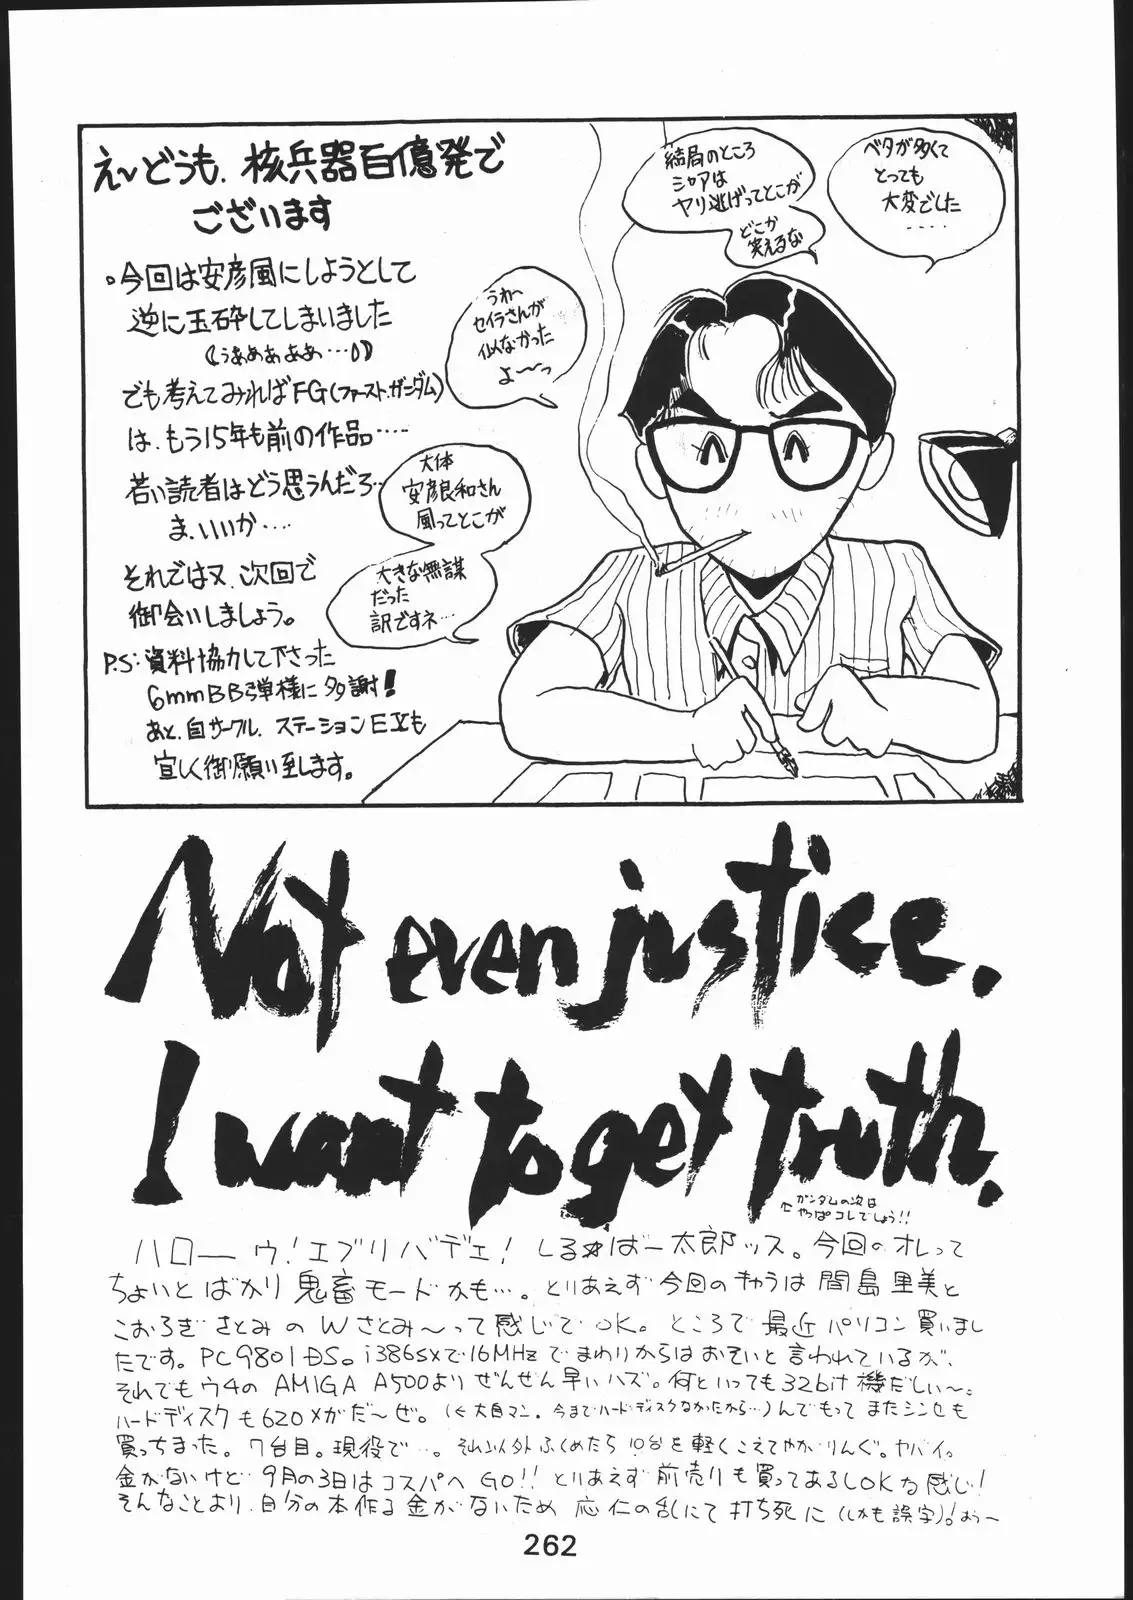 え〜どうも、核兵器百億発で
ございます
。今回は安彦風にしようとして
逆に玉砕してしまいました
でも考えてみればFG(ファースト.ガンダム)
は、もう15年も前の作品‥‥
若い読者はどう思うんだろ‥
ま、いいか‥‥
それでは又、次回で
御会いしましょう。
P.S:資料協力して下さった
6mmBB弾様に多謝!
あと、自サークル、ステーションEXも
宜しく御願い致します。
ベタが多くて
とっても
大変でした
‥‥
結局のところ
シャアは
ヤリ逃げってとこが
どこか
笑えるな
うわ〜
セイラさんが
似なかった
よ〜っ
大体
安彦良和さん
風ってとこが
大きな無謀
だった
訳ですネ…
Not even justice.
I want to get truth.
ガンダムの次は
やっぱコレでしょう!!
ハローゥ!エブリバデェ!しる☆ばー太郎ッス。今回のオレって
ちょいとばかり鬼畜モードかも…。とりあえず今回のキャラは間島里美と
こおろぎさとみのWさとみ〜って感じでOK。ところで最近パソコン買いまし
たです。PC9801DS。i386SXで16MHzでまわりからはおそいと言われているが、
それでもウチのAMIGA A500よりぜんぜん早いハズ。何といっても32bit機だしぃ〜。
ハードディスクも620メがだ〜ぜ。(←大自マン。今までハードディスクなかったから…)んでもってまたシンセも
買っちまった。7台目。現役で…。それ以外ふくめたら10台を軽くこえてやがりんぐ。ヤバイ。
金がないけど9月の3日はコスパへGO!!とりあえず前売りも買ってあるしOKな感じ!
そんなことより、自分の本作る金がないため応仁の乱にて打ち死に(しかも誤字)!おぅ〜
262